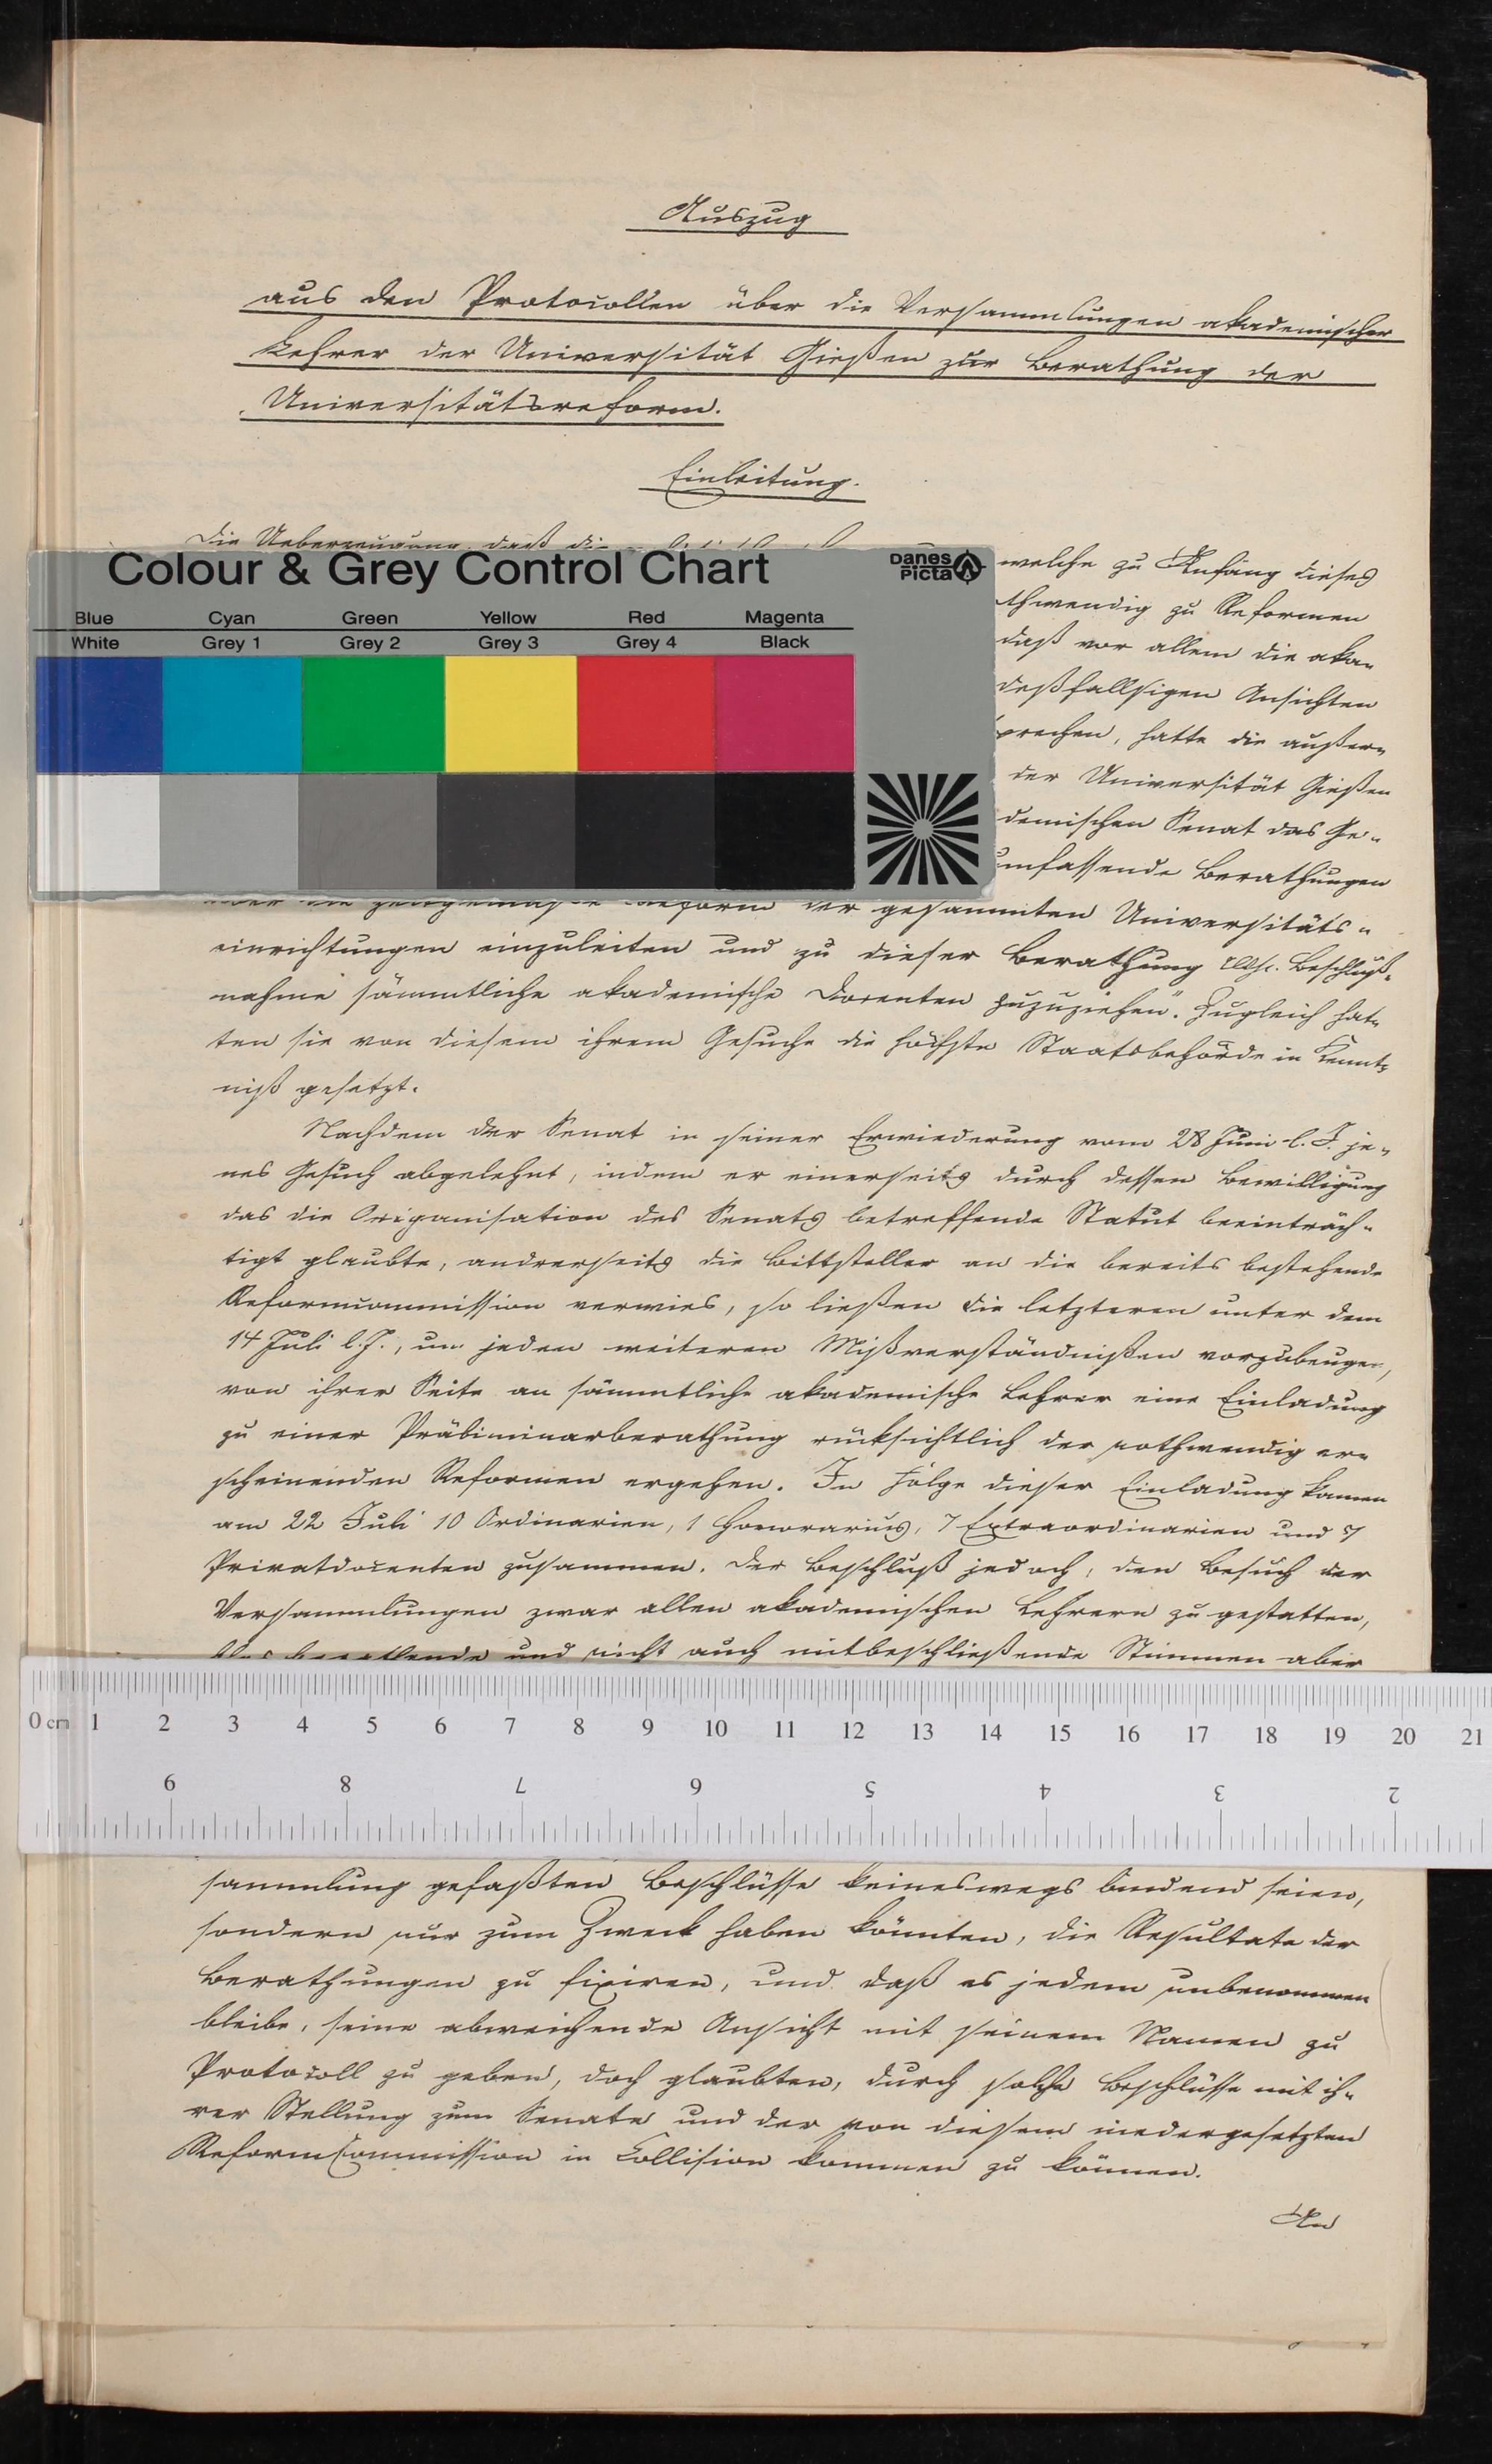 Auszug
aus den Protocollen über die Versammlungen akademischer
Lehrer der Universität Gießen zur Berathung der
Universitätsreform.
Einleitung.
Die Ueberzeugung, daß die
welche zu Anfang dieses
thwendig zu Reformen
daß vor allem die aka-
deßfallsigen Ansichten
sprechen, hatte die außer-
der Universität Gießen
demischen Senat das Ge-
umfassende Berathungen
Colour & Grey Control Chart
Danes Picta
Blue Cyan Green Yellow Red Magenta
White Grey 1 Grey 2 Grey 3 Grey 4 Black
über die zeitgemäße Reform der gesammten Universitäts-
einrichtungen einzuleiten und zu dieser Berathung resp. Beschluß-
nahme sämmtliche akademische Docenten zuzuziehen". Zugleich hat-
ten sie von diesem ihrem Gesuche die höchste Staatsbehörde in Kennt-
niß gesetzt.
Nachdem der Senat in seiner Erwiederung vom 28 Juni l. J. je-
nes Gesuch abgelehnt, indem er einerseits durch dessen Bewilligung
das die Origanisation des Senats betreffende Statut beeinträch-
tigt glaubte, andrerseits die Bittsteller an die bereits bestehende
Reformcommission verwies, so ließen die letzteren unter dem
14 Juli l. J., um jeden weiteren Mißverständnißen vorzubeugen,
von ihrer Seite an sämmtliche akademische Lehrer eine Einladung
zu einer Präliminarberathung rücksichtlich der nothwendig er-
scheinenden Reformen ergehen. In Folge dieser Einladung kamen
am 22 Juli 10 Ordinarien, 1 Honorarius, 7 Extraordinarien und 7
Privatdocenten zusammen. Der Beschluß jedoch, den Besuch der
Versammlungen zwar allen akademischen Lehrern zu gestatten,
berathende und nicht auch mitbeschließende Stimmen aber
0 cm 1 2 3 4 5 6 7 8 9 10 11 12 13 14 15 16 17 18 19 20 21
9 8 7 6 5 4 3 2
sammlung gefaßten Beschlüsse keineswegs bindend seien,
sondern nur zum Zweck haben könnten, die Resultate der
Berathungen zu fixiren, und daß es jedem unbenommen
bleibe, seine abweichende Ansicht mit seinem Namen zu
Protocoll zu geben, doch glaubten, durch solche Beschlüsse mit ih-
rer Stellung zum Senate und der von diesem niedergesetzten
ReformCommission in Collision kommen zu können.
An